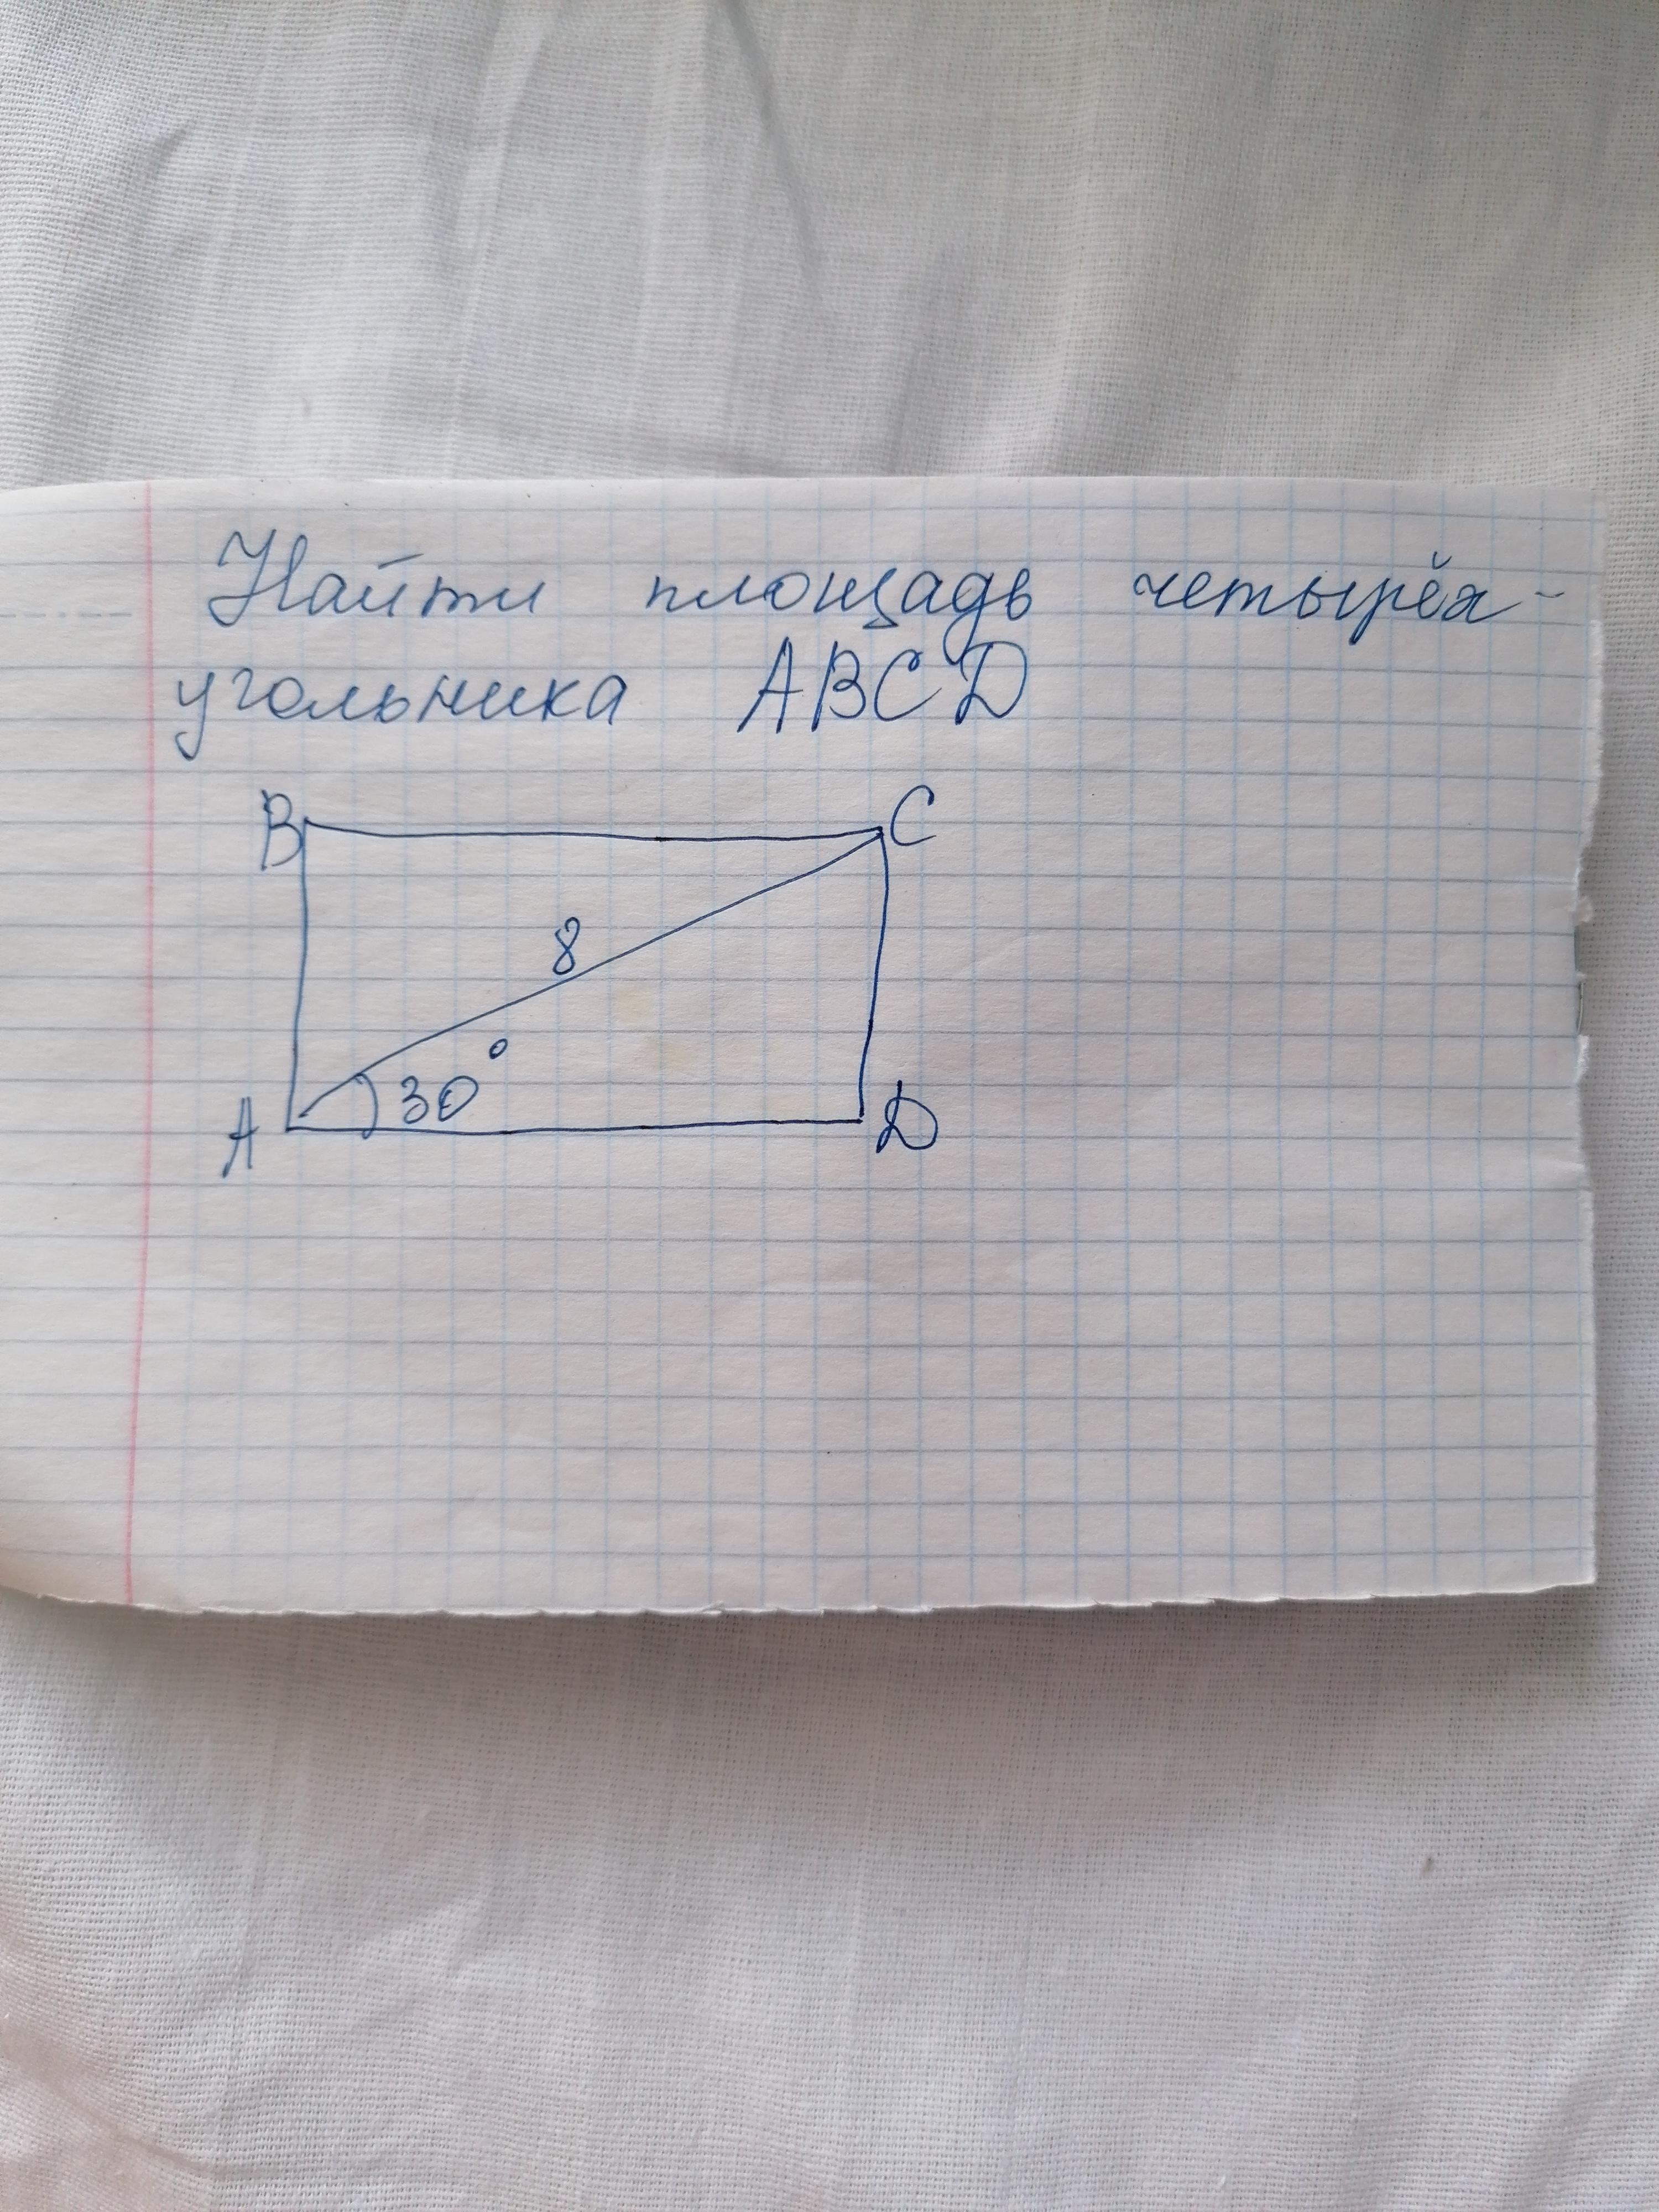 Найти площадь четырёх-
угольника ABCD
B
C
8
30°
A
D